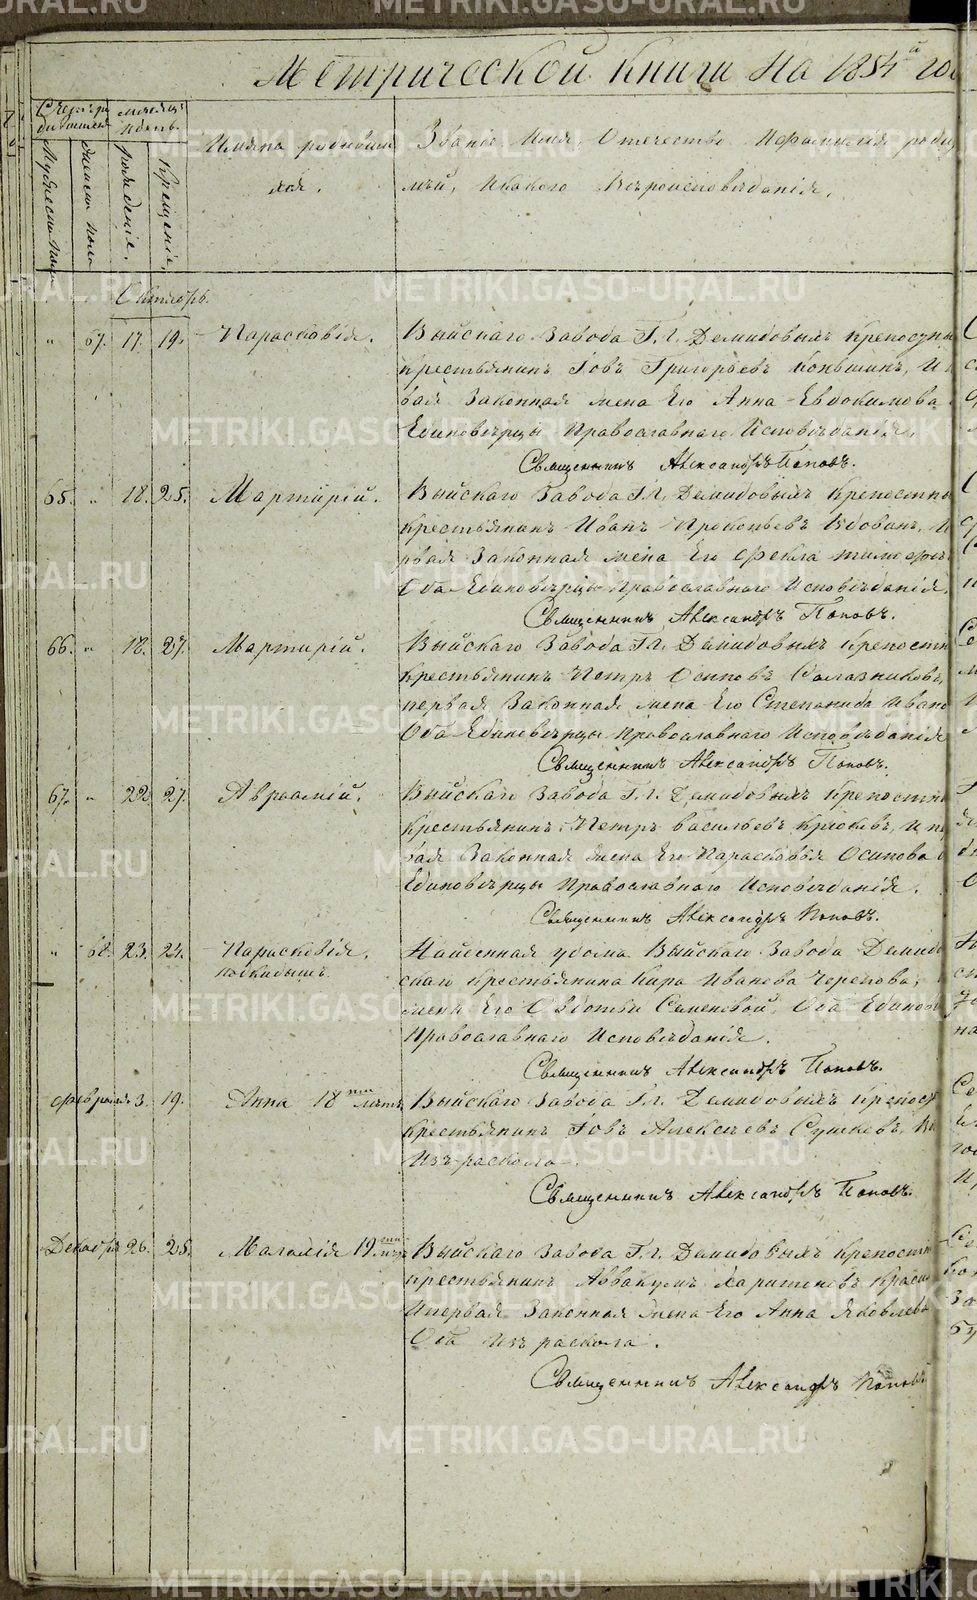 METRIKI.GASO-URAL.RU
Метрической книги на 1854й го
Счетъ ро
дившихся
месяцъ
и день.
Мужеска пола
Женска пола
рожденіе.
крещеніе.
Имяна родивши
хся.
Званіе, Имя, Отечество И фамилія роди
лей, и какого Вѣроисповѣданія.
Октябрь.
" 67. 17. 19. Парасковія. Выйскаго Завода Г.г. Демидовыхъ крепостны
крестьянинъ Іовъ Григорьевъ Коньшинъ, И
вая Законная жена Его Анна Евдокимова
Единовѣрцы Православнаго Исповѣданія.
Священникъ Александръ Поповъ.
65. " 18. 25. Мартирій. Выйскаго Завода Г.г. Демидовыхъ Крепостны
крестьянинъ Иванъ Прокопьевъ И
рвая Законная жена Его Фекла Тимофѣ
Оба Единовѣрцы Православнаго Исповѣданія.
Священникъ Александръ Поповъ.
66. " 18. 27. Мартирій. Выйскаго Завода Г.г. Демидовыхъ Крепостн
крестьянинъ Петръ Осиповъ
первая Законная жена Его Степанида Ивано
Оба Единовѣрцы Православнаго Исповѣданія
Священникъ Александръ Поповъ.
67. " 22 27. Авраамій. Выйскаго Завода Г.г. Демидовыхъ Крепостны
крестьянинъ Петръ Васильевъ Крюковъ, И пе
вая Законная жена Его Парасковья Осипова
Единовѣрцы Православнаго Исповѣданія.
Священникъ Александръ Поповъ.
" 68. 23. 24. Парасковія. Найденная у дома Выйскаго Завода Демидо
подкидышъ. скаго крестьянина Кира Иванова Черепова,
жены Его Овдотьи Семеновой, Оба Единов
Православнаго Исповѣданія.
Священникъ Александръ Поповъ.
февраля 3. 19. Анна 18ти лѣтъ Выйскаго Завода Г.г. Демидовыхъ Крепост
крестьянинъ Іовъ Алексѣевъ Сушковъ,
Изъ раскола.
Священникъ Александръ Поповъ.
Декабря 26. 25. Маламія 19ти Выйскаго Завода Г.г. Демидовыхъ Крепостн
крестьянинъ Аввакумъ Харитоновъ
И первая Законная жена Его Анна Яковлева
Оба Изъ раскола.
Священникъ Александръ Поповъ